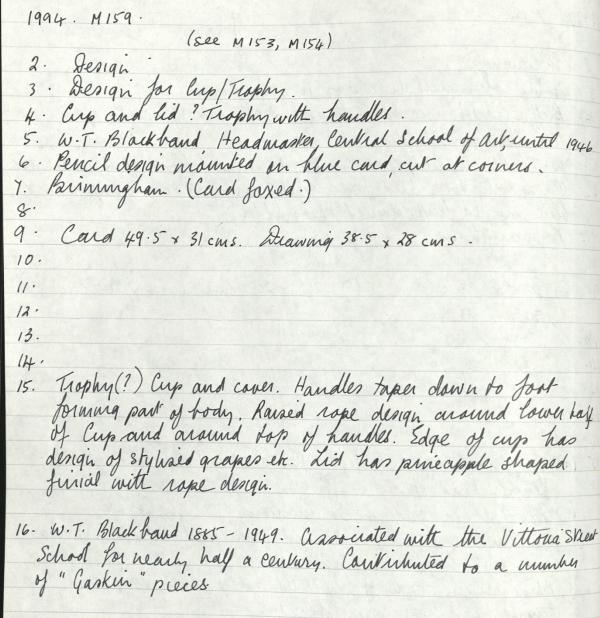 1994. M159.
(see M153, M154)
2. Design
3. Design for Cup/Trophy.
4. Cup and lid ? Trophy with handles.
5. W.T. Blackband, Headmaster, Central School of Art, until 1946
6. Pencil design mounted on blue card, cut at corners.
7. Birmingham. (Card foxed.)
8.
9. Card 49.5 x 31 cms. Drawing 38.5 x 28 cms.
10.
11.
12.
13.
14.
15. Trophy(?) Cup and cover. Handles taper down to foot
forming part of body. Raised rope design around lower half
of Cup and around top of handles. Edge of cup has
design of stylised grapes etc. Lid has pineapple shaped
finial with rope design.
16. W.T. Blackband 1885-1949. Associated with the Vittoria Street
School for nearly half a century. Contributed to a number
of "Gaskin" pieces